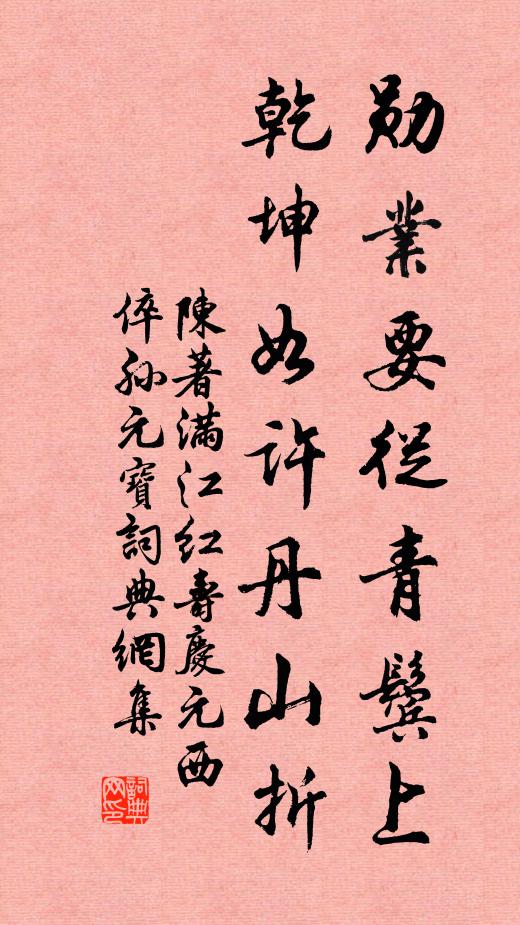 勛業要從青鬢上
乾坤如許丹山折
陳著滿江紅壽慶元西
倅孙元寶詞典網集
詞典
网印